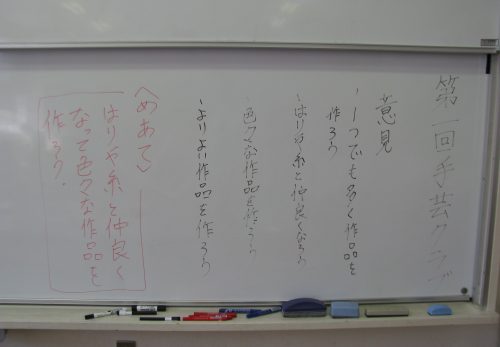 第一回手芸クラブ
意見
・1つでも多く作品を
作ろう
・はりや糸と仲良くなろう
・色々な作品を作ろう
・よりよい作品を作ろう
〈めあて〉
はりや糸と仲良く
なって色々な作品を
作ろう.